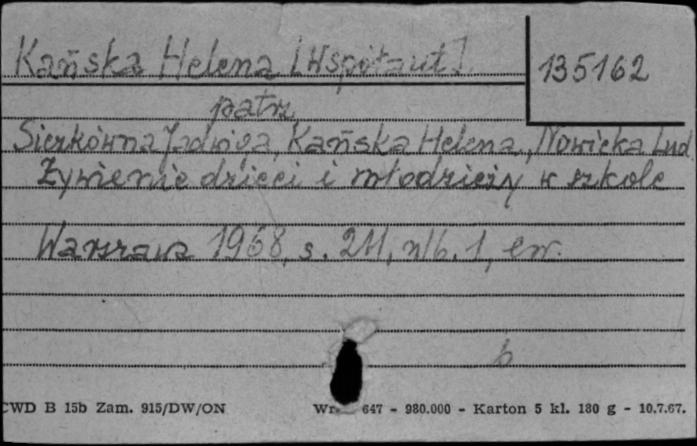 Kańska Helena [Współaut]
135162
patrz
Sierkówna Jadwiga, Kańska Helena, Nowicka Lud
Żywienie dzieci i młodzieży w szkole
Warszawa 1968, s. 211, nlb. 1, err.
b
CWD B 15b Zam. 915/DW/ON Wr. 647 - 980.000 - Karton 5 kl. 180 g - 10.7.67.